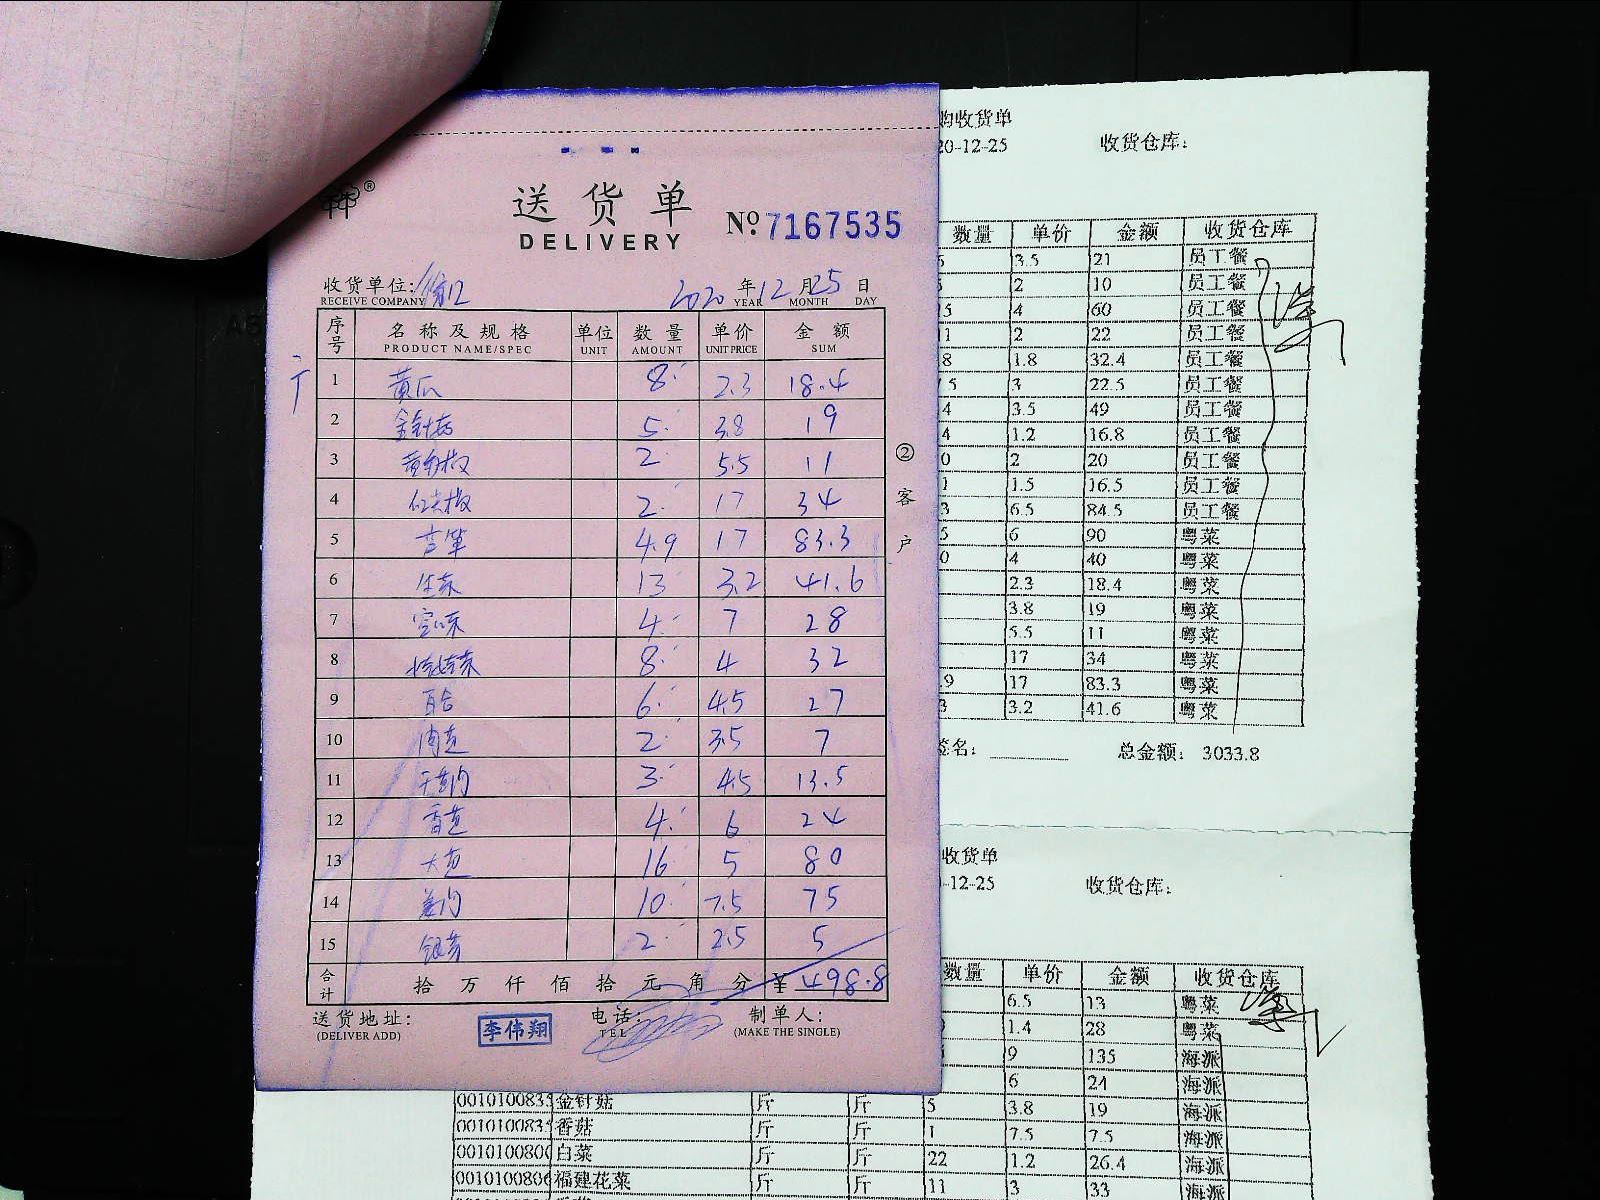 送货单
DELIVERY
№ 7167535
收货单位:
RECEIVE COMPANY
2020 年 12 月 25 日
YEAR MONTH DAY
序号 名称及规格 单位 数量 单价 金额
PRODUCT NAME/SPEC UNIT AMOUNT UNIT PRICE SUM
1 黄瓜 8 2.3 18.4
2 金针菇 5 3.8 19
3 2 5.5 11
4 2 17 34
5 4.9 17 83.3
6 13 3.2 41.6
7 4 7 28
8 8 4 32
9 百合 6 4.5 27
10 2 3.5 7
11 3 4.5 13.5
12 4 6 24
13 16 5 80
14 10 7.5 75
15 银芽 2 2.5 5
合计 拾 万 仟 佰 拾 元 角 分 ¥ 498.8
送货地址: 李伟翔 电话: 制单人:
(DELIVER ADD) TEL (MAKE THE SINGLE)
②客户
购收货单
20-12-25 收货仓库:
数量 单价 金额 收货仓库
3.5 21 员工餐
2 10 员工餐
4 60 员工餐
2 22 员工餐
1.8 32.4 员工餐
3 22.5 员工餐
3.5 49 员工餐
1.2 16.8 员工餐
2 20 员工餐
1.5 16.5 员工餐
6.5 84.5 员工餐
6 90 粤菜
4 40 粤菜
2.3 18.4 粤菜
3.8 19 粤菜
5.5 11 粤菜
17 34 粤菜
17 83.3 粤菜
3.2 41.6 粤菜
签名: 总金额: 3033.8
收货单
-12-25 收货仓库:
数量 单价 金额 收货仓库
6.5 13 粤菜
1.4 28 粤菜
9 135 海派
6 24 海派
0010100835 金针菇 斤 斤 5 3.8 19 海派
001010083 香菇 斤 斤 1 7.5 7.5 海派
001010080 白菜 斤 斤 22 1.2 26.4 海派
001010080 福建花菜 斤 斤 11 3 33 海派